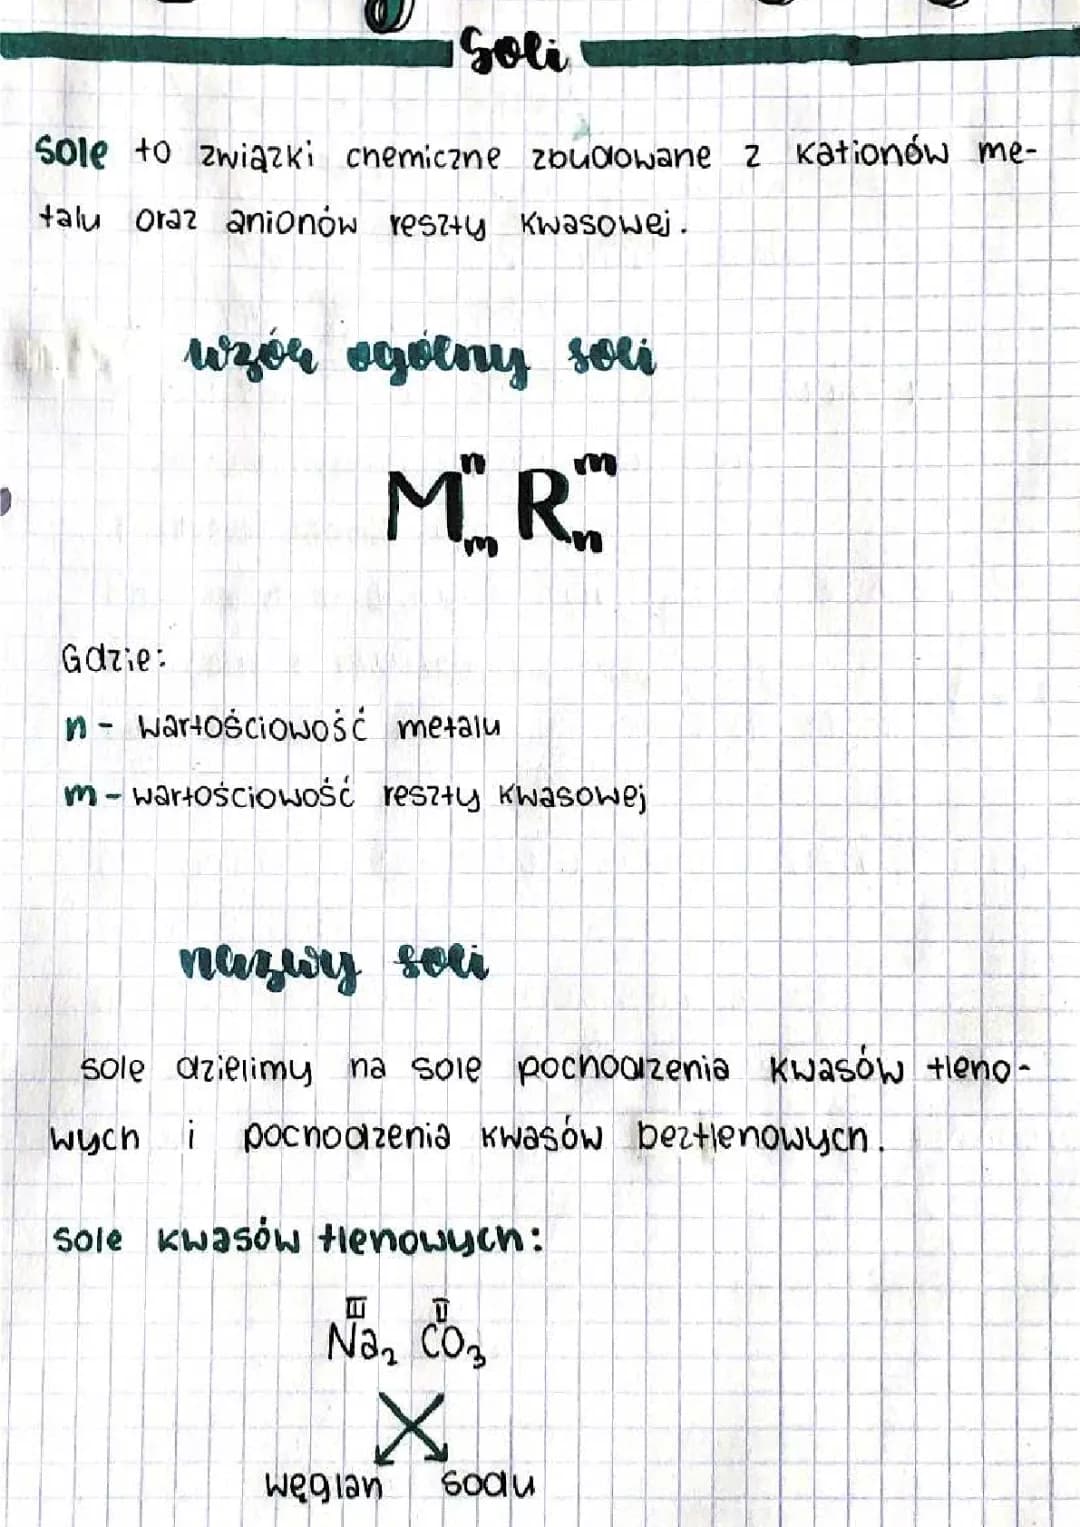 Soli
Sole to związki chemiczne zbudowane z kationów me-
talu oraz anionów reszty kwasowej.
wzór ogólny soli
MⁿₘRᵐₙ
Gdzie:
n - wartościowość metalu
m - wartościowość reszty kwasowej
nazwy soli
sole dzielimy na sole pochodzenia kwasów tleno-
wych i pochodzenia kwasów beztlenowych.
sole kwasów tlenowych:
III II
Na₂ CO₃
węglan sodu